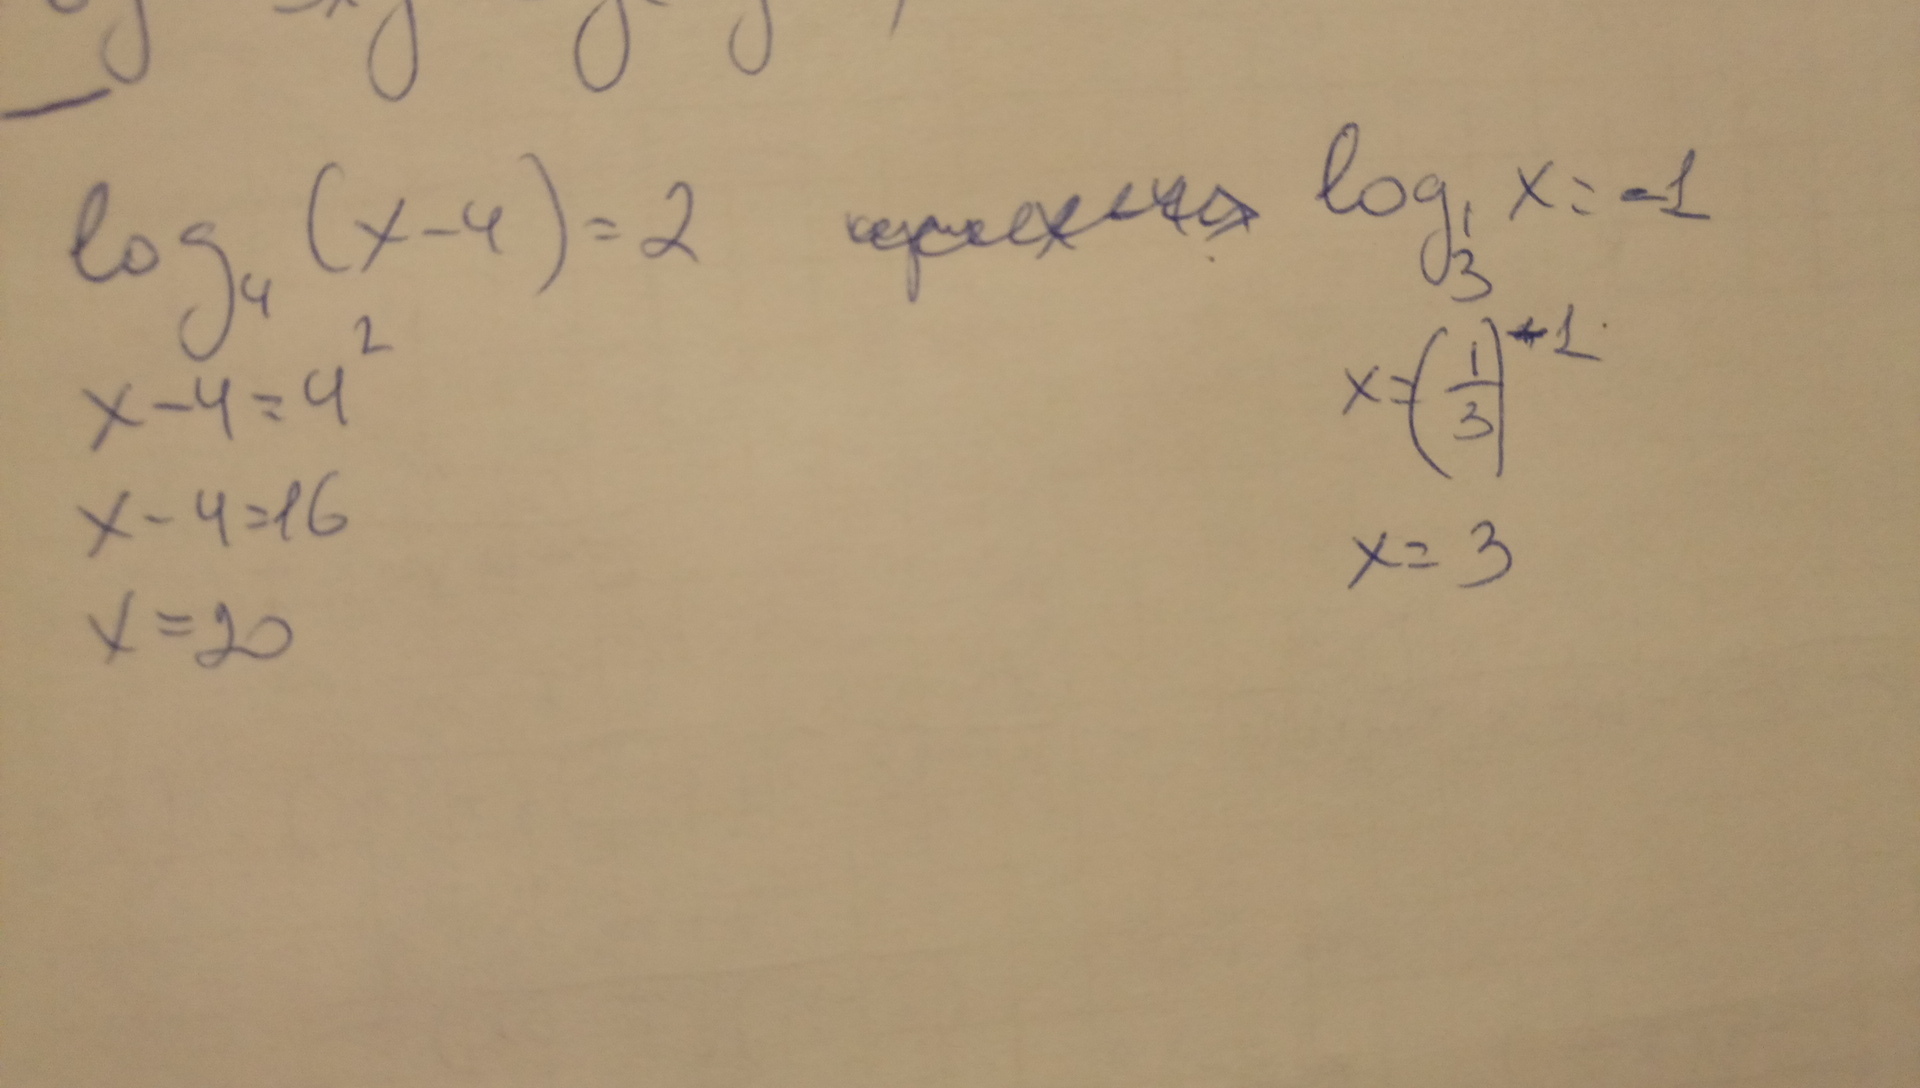 log₄ (x-4)=2
x-4=4²
x-4=16
x=20
log 1/3 x=-1
x=(1/3)⁻¹
x=3